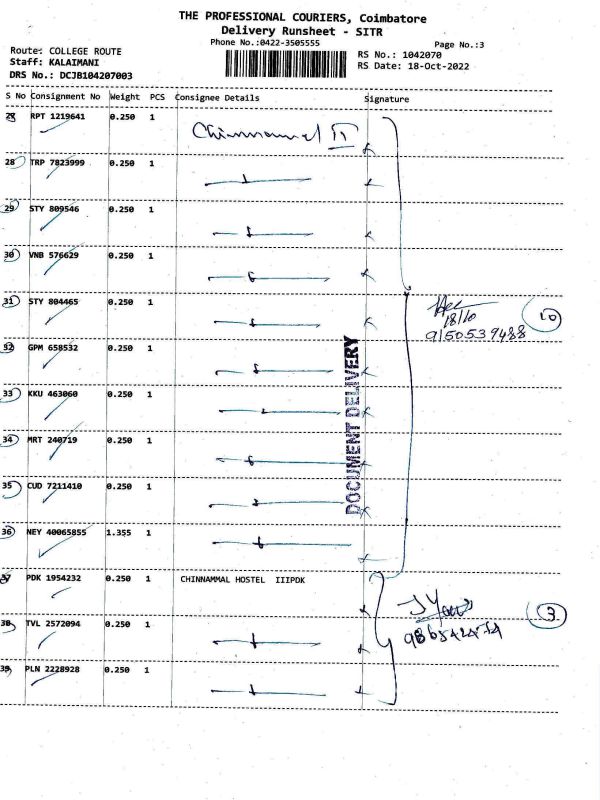 THE PROFESSIONAL COURIERS, Coimbatore
Delivery Runsheet - SITR
Phone No.:0422-3505555
Page No.:3
Route: COLLEGE ROUTE
RS No.: 1042070
Staff: KALAIMANI
RS Date: 18-Oct-2022
DRS No.: DCJB104207003
S No Consignment No Weight PCS Consignee Details Signature
27 RPT 1219641 0.250 1 Chinnammal II
28 TRP 7823999 0.250 1
29 STY 809546 0.250 1
30 VNB 576629 0.250 1
31 STY 804465 0.250 1
18/10
10
9150539488
32 GPM 658532 0.250 1
33 KKU 463060 0.250 1
34 MRT 240719 0.250 1
35 CUD 7211410 0.250 1
DOCUMENT DELIVERY
36 NEY 40065855 1.355 1
37 PDK 1954232 0.250 1 CHINNAMMAL HOSTEL IIIPDK
3
38 TVL 2572094 0.250 1
39 PLN 2228928 0.250 1